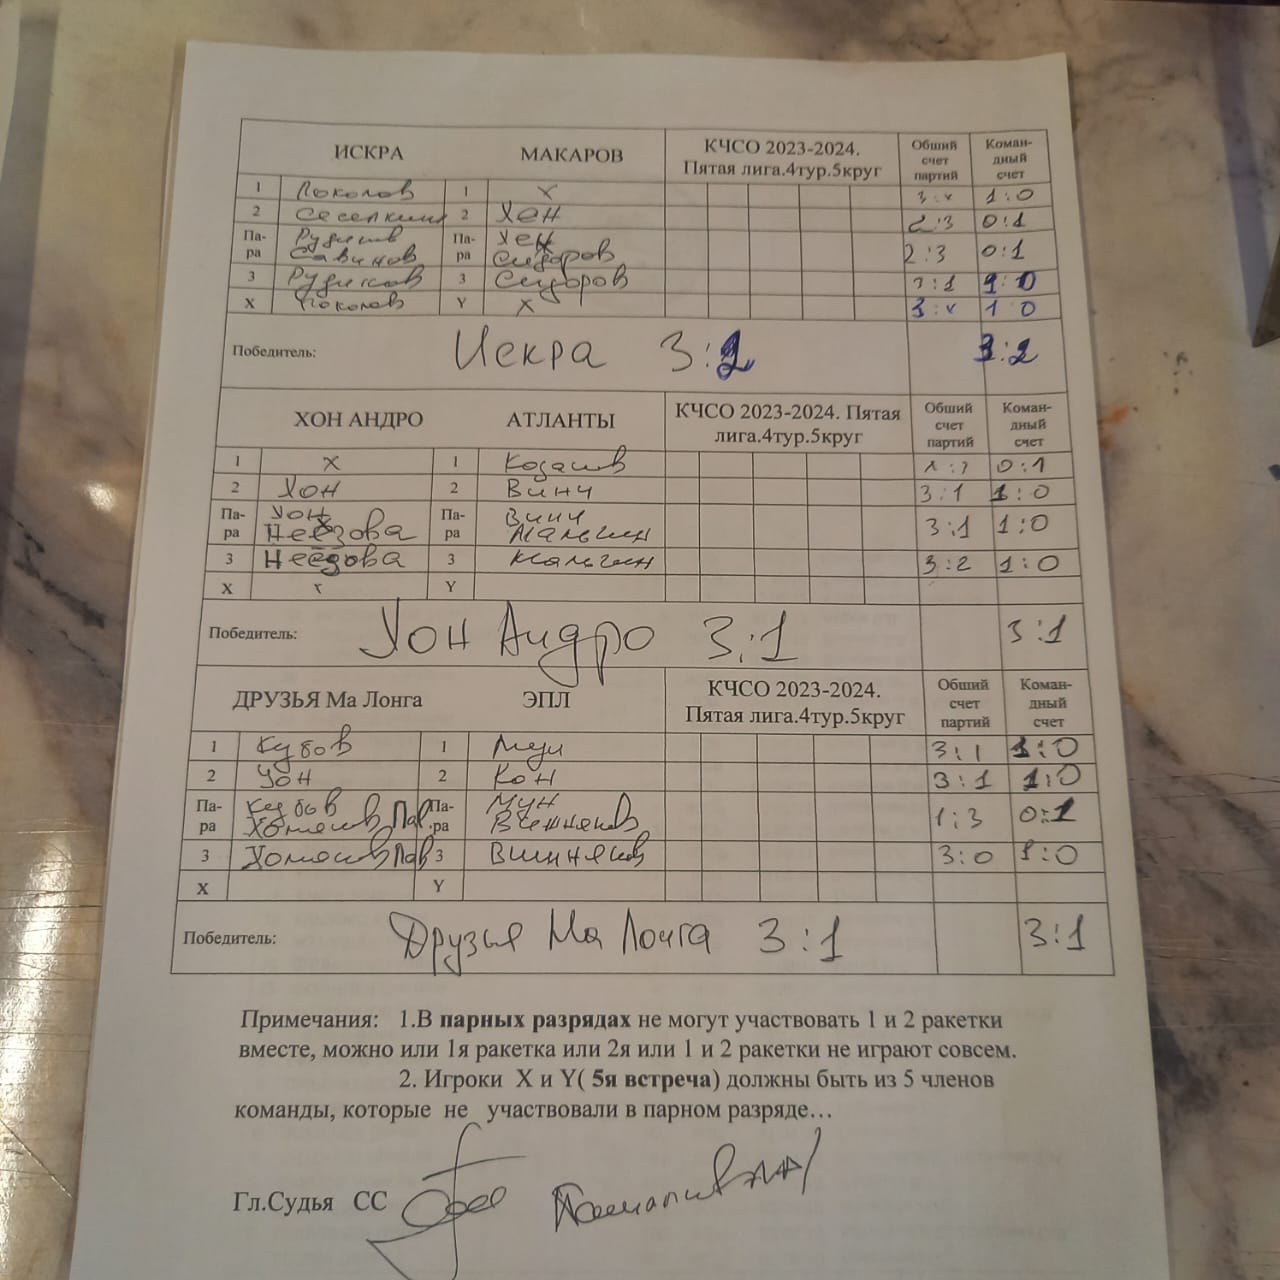 ИСКРА МАКАРОВ КЧСО 2023-2024. Пятая лига.4тур.5круг Общий счет партий Коман-дный счет
1 1 X 1:0
2 2 Хен 2:3 0:1
Па-ра Савинов Па-ра Хен Сидоров 2:3 0:1
3 3 Сидоров 3:1 1:0
X Y X 3:x 1 0
Победитель: Искра 3:2 3:2
ХОН АНДРО АТЛАНТЫ КЧСО 2023-2024. Пятая лига.4тур.5круг Общий счет партий Коман-дный счет
1 X 1 0:1
2 Хон 2 Винч 3:1 1:0
Па-ра Хон Неёзова Па-ра Винч Мальгин 3:1 1:0
3 Неёзова 3 Мальгин 3:2 1:0
X Y
Победитель: Хон Андро 3:1 3:1
ДРУЗЬЯ Ма Лонга ЭПЛ КЧСО 2023-2024. Пятая лига.4тур.5круг Общий счет партий Коман-дный счет
1 Кубов 1 3:1 1:0
2 Хон 2 Кон 3:1 1:0
Па-ра Кубов Па-ра Мун 1:3 0:1
3 3 Вишняков 3:0 1:0
X Y
Победитель: Друзья Ма Лонга 3:1 3:1
Примечания: 1.В парных разрядах не могут участвовать 1 и 2 ракетки
вместе, можно или 1я ракетка или 2я или 1 и 2 ракетки не играют совсем.
2. Игроки X и Y( 5я встреча) должны быть из 5 членов
команды, которые не участвовали в парном разряде…
Гл.Судья СС